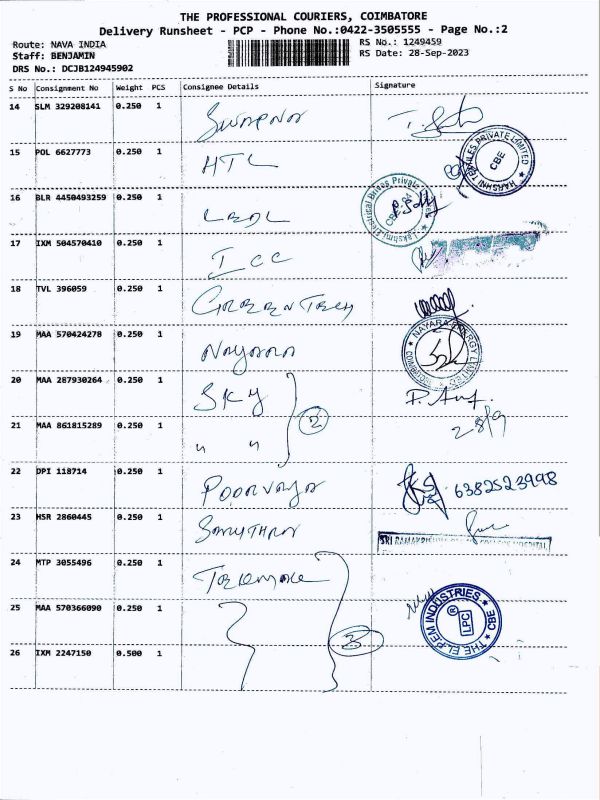 THE PROFESSIONAL COURIERS, COIMBATORE
Delivery Runsheet - PCP - Phone No.:0422-3505555 - Page No.:2
Route: NAVA INDIA
RS No.: 1249459
Staff: BENJAMIN
RS Date: 28-Sep-2023
DRS No.: DCJB124945902
S No Consignment No Weight PCS Consignee Details Signature
14 SLM 329208141 0.250 1
15 POL 6627773 0.250 1 HTL
HARSHNI TEXTILES PRIVATE LIMITED CBE
16 BLR 4450493259 0.250 1
17 IXM 504570410 0.250 1 ICC
18 TVL 396059 0.250 1 GREEN TECH
19 MAA 570424278 0.250 1 NAYARA
NAYARA ENERGY LIMITED
20 MAA 287930264 0.250 1 SKY
2
21 MAA 861815289 0.250 1 " "
28/9
22 DPI 118714 0.250 1 6382523998
23 HSR 2860445 0.250 1
24 MTP 3055496 0.250 1
25 MAA 570366090 0.250 1
THE EL.PEM INDUSTRIES CBE
® LPC
26 IXM 2247150 0.500 1
3